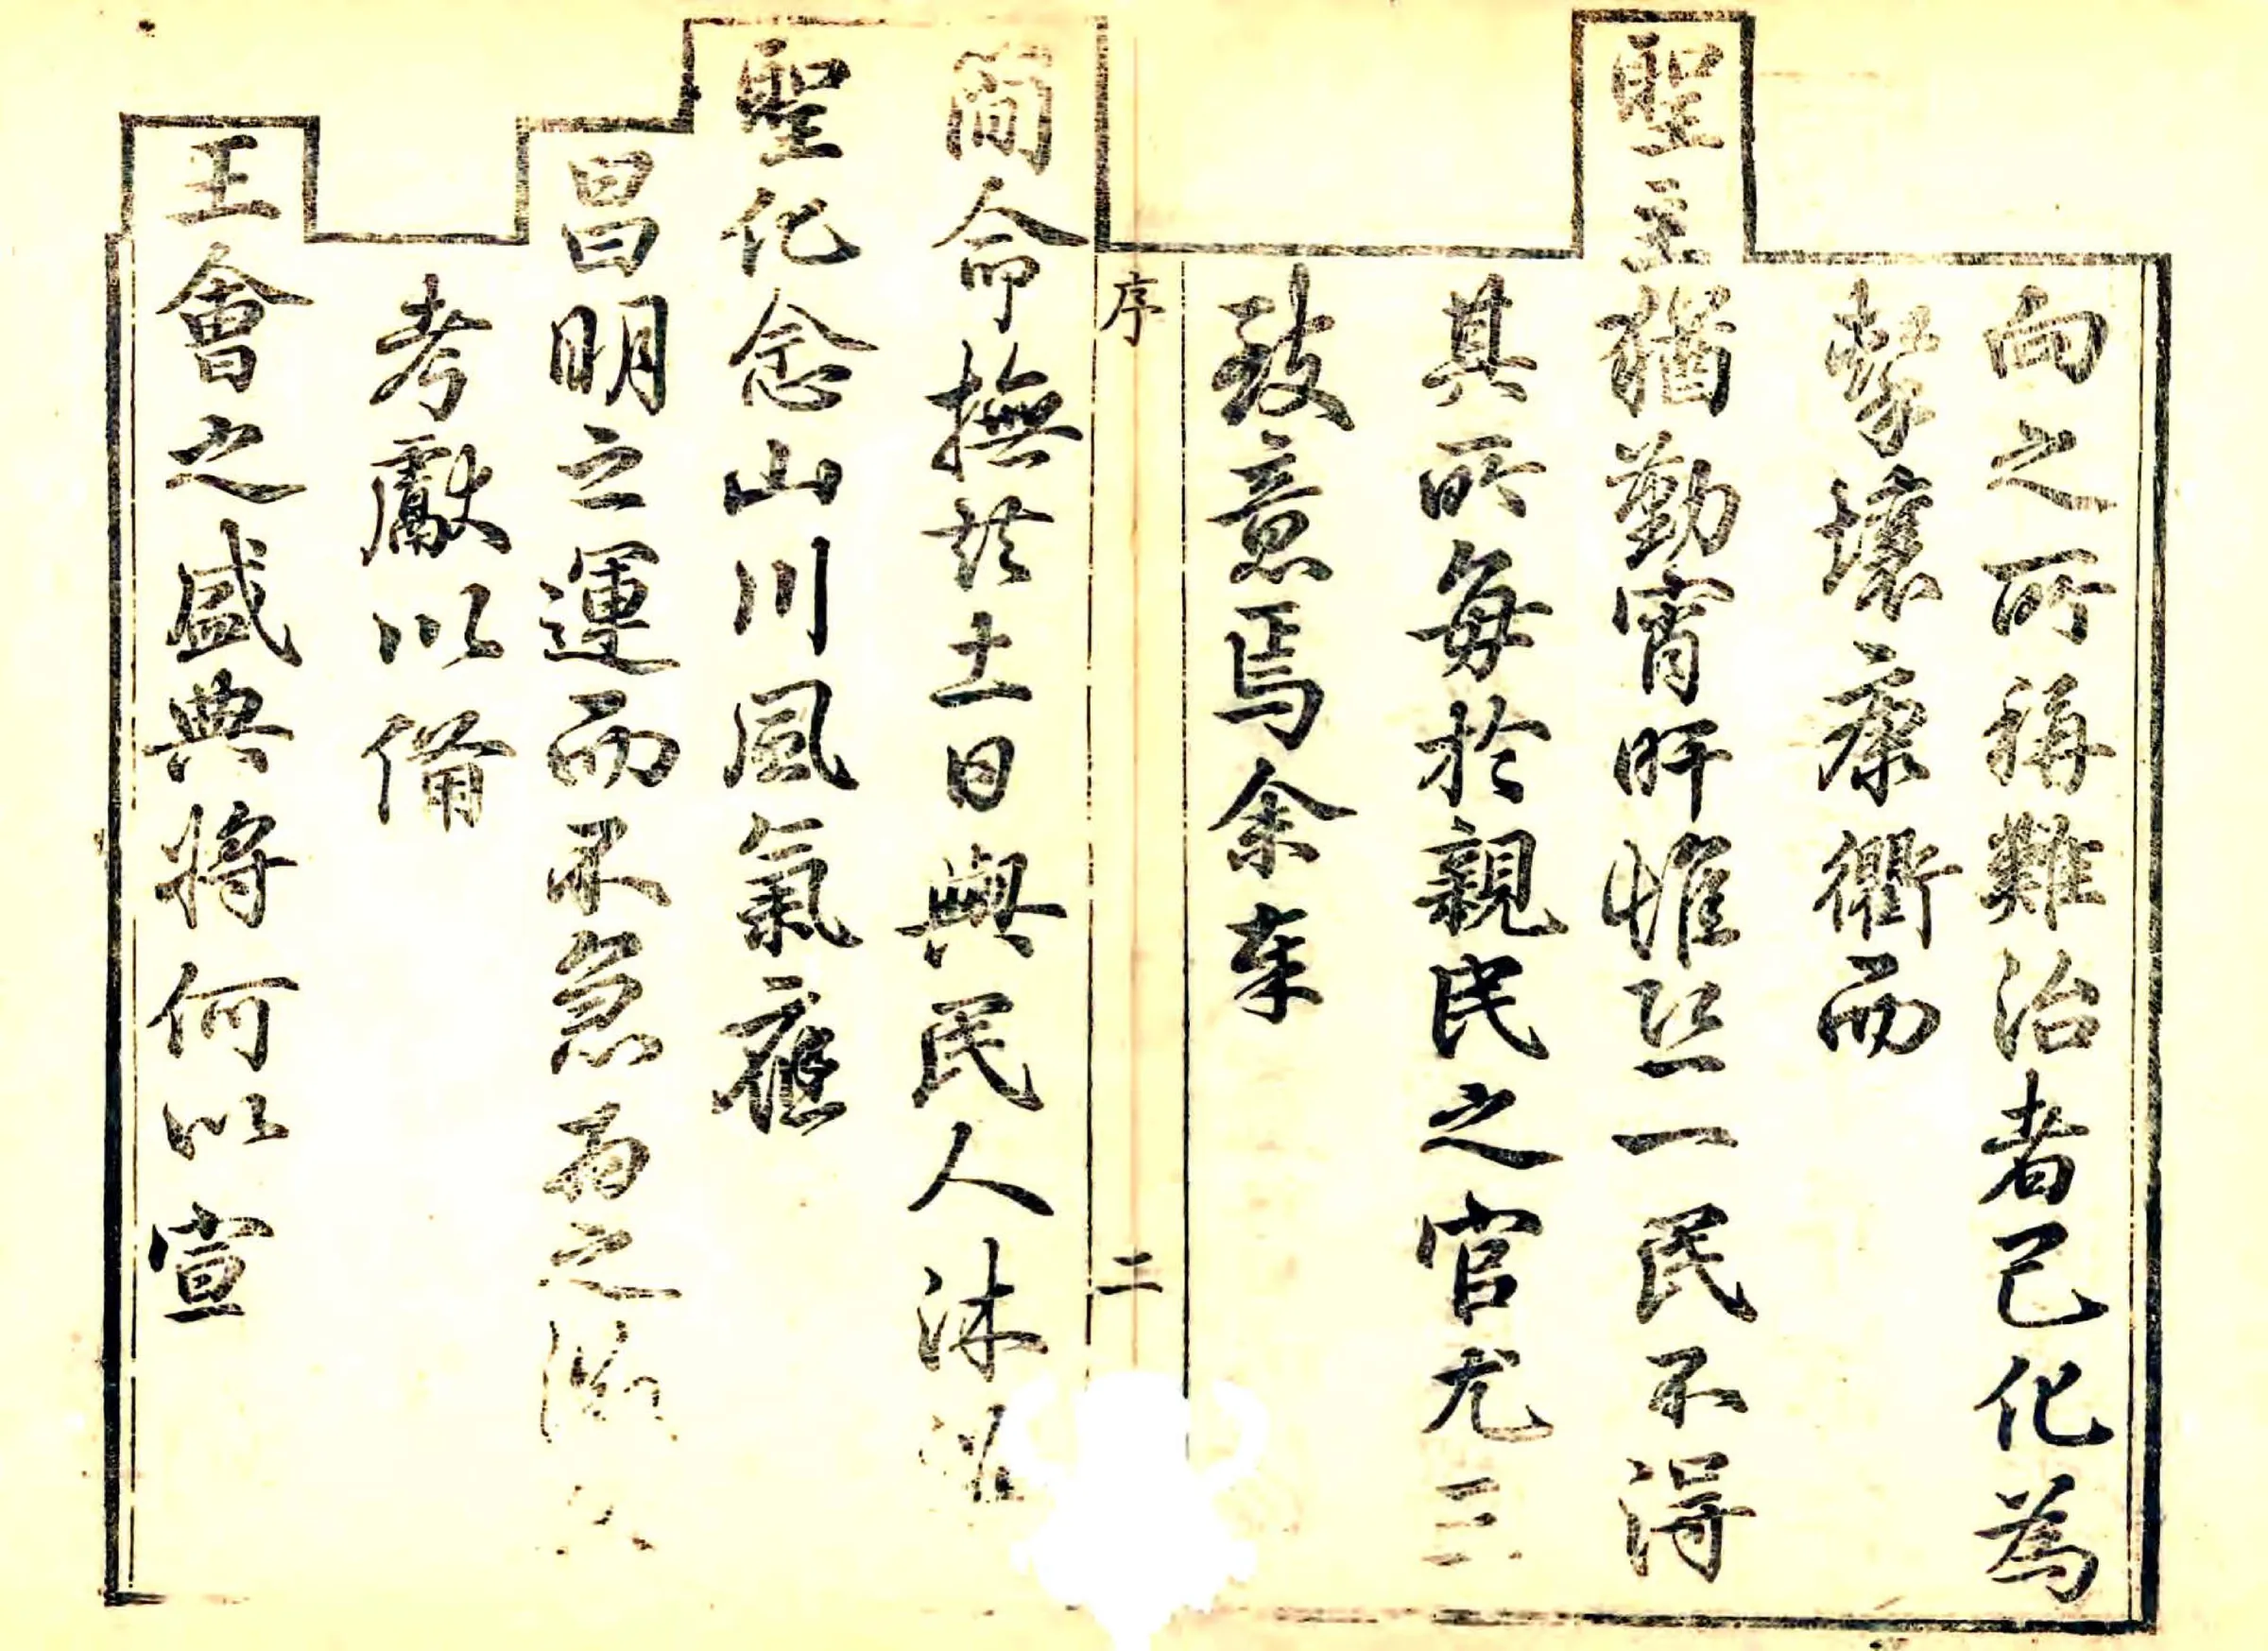 向之所稱難治者已化為
擊壤康衢而
聖主猶勤宵旰惟恐一民不得
其所每於親民之官尤三
致意焉余奉
序
二
簡命撫茲土日與民人沐浴
聖化念山川風氣應
昌明之運而不急為之
考獻以備
王會之盛典將何以宣